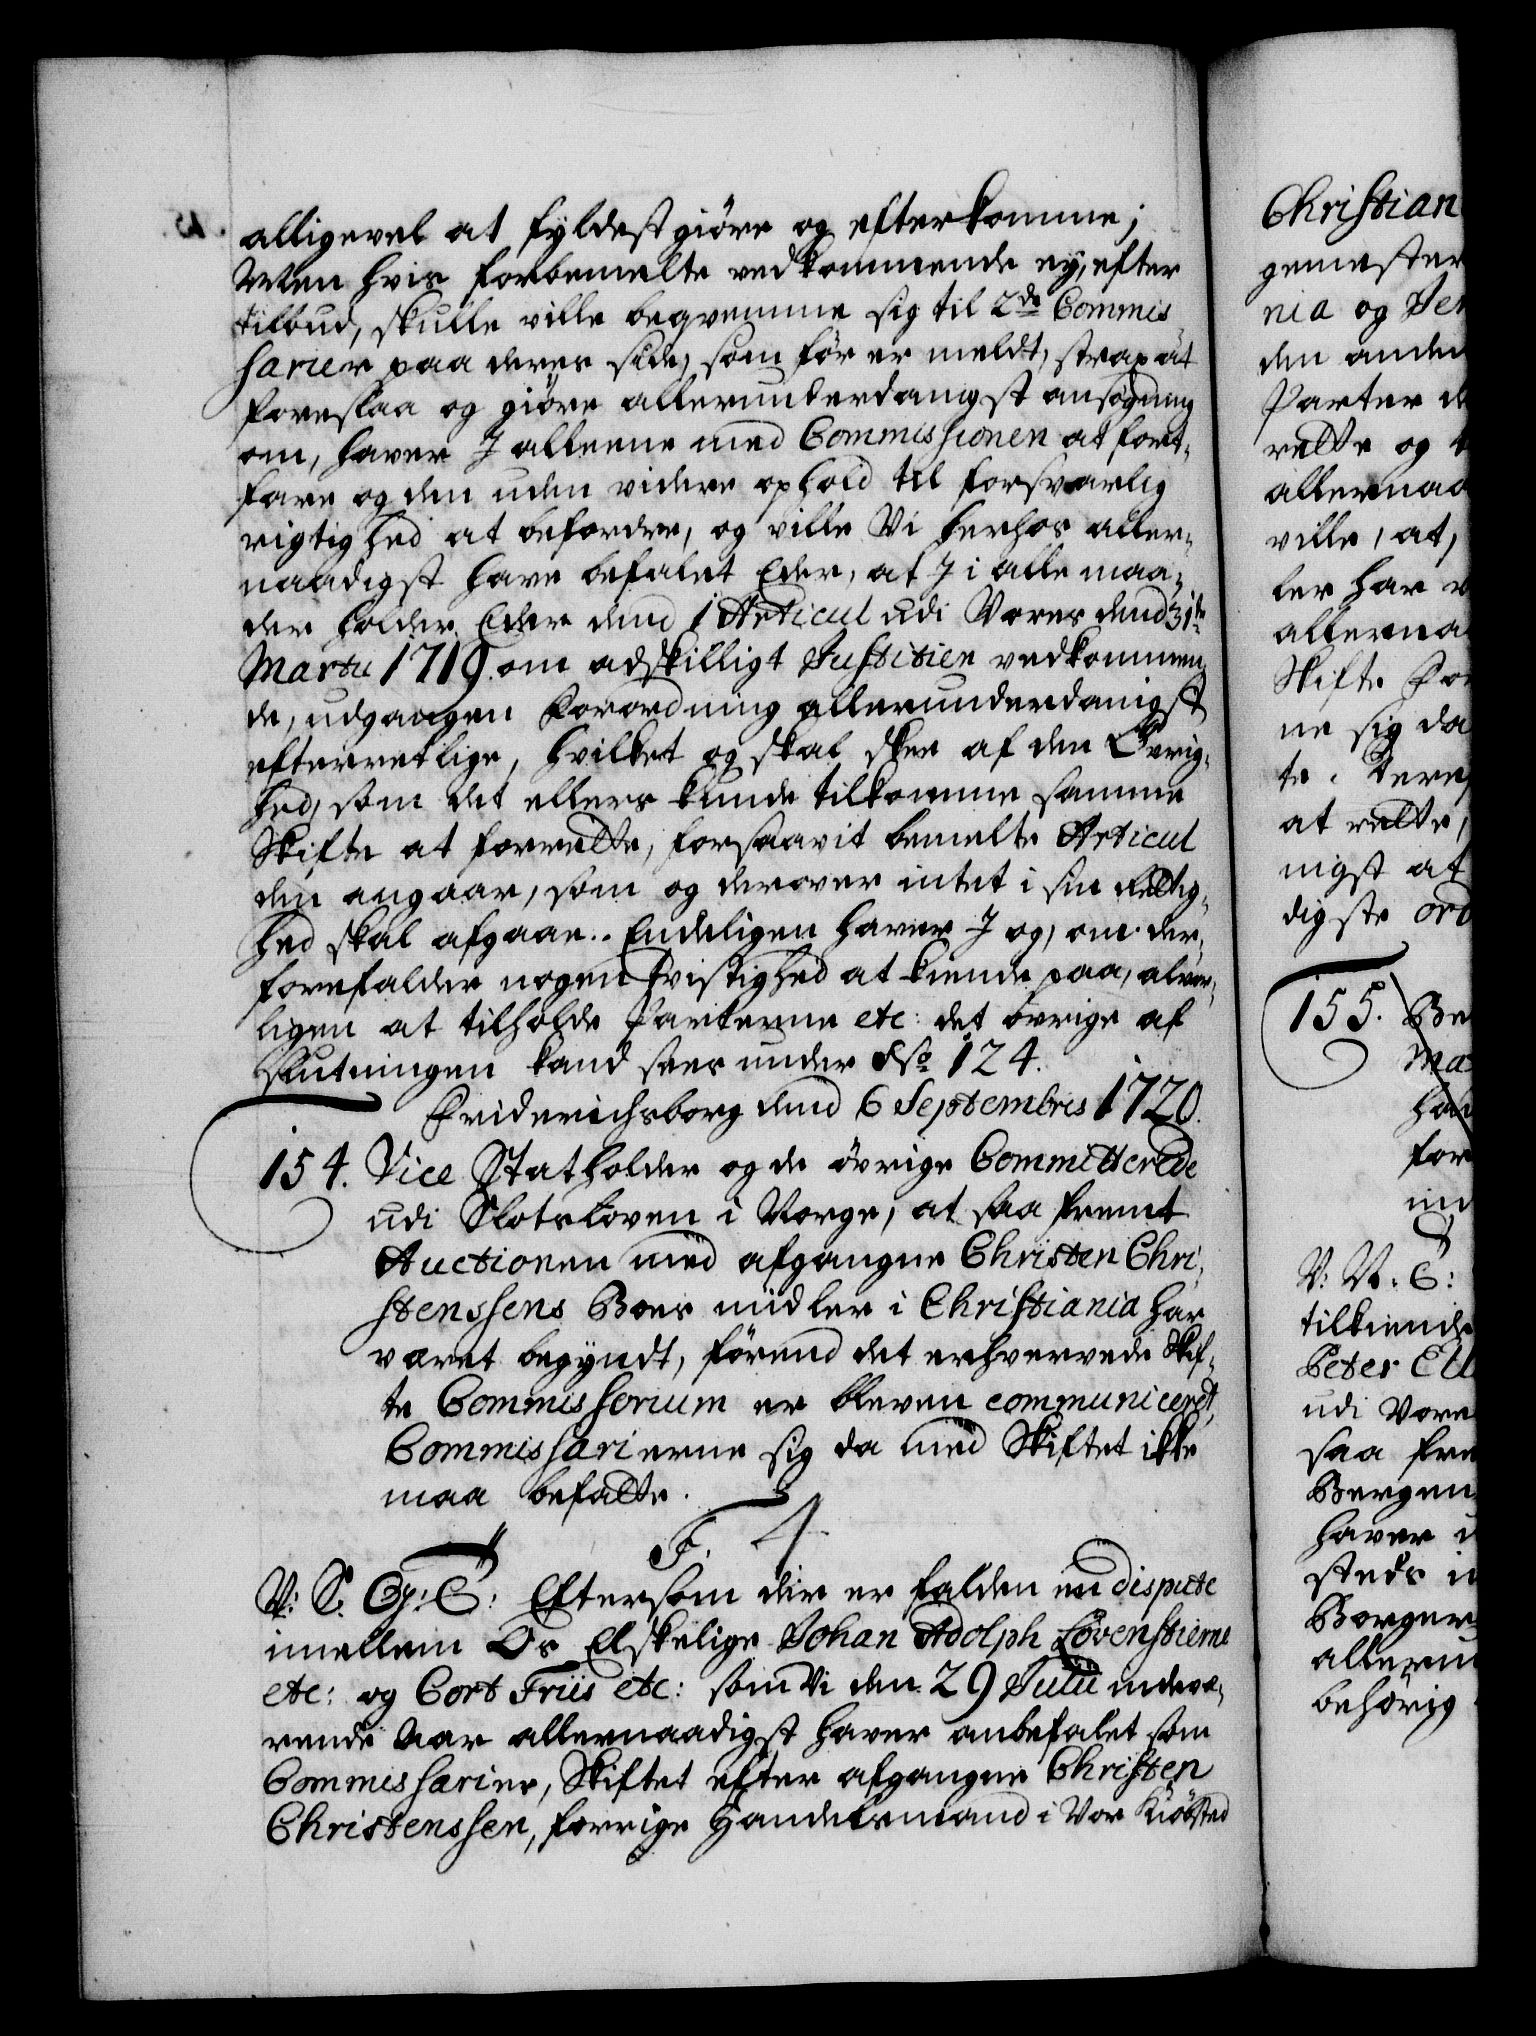 alligevel at fyldestgiöre og efterkomme;
Men hvis forbemelte vedkommende ey, efter
tilbud, skulle ville beqvemme sig til 2de Commis
sarier paa deres side, som før er meldt, strax at
foreslaa og giöre allerunderdanigst ansøgning
om, haver I alleene med Commissionen at fort-
fare og den uden videre ophold til forsvarlig
rigtighed at befordre, og ville Vi herhos aller-
naadigst have befalet Eder, at I i alle maa-
der holder Eder dend 1 Articul udi Vores dend 31te
Martii 1719. om adskilligt Justitien vedkommen
de, udgangen Forordning allerunderdanigst
efterretlige, hvilket og skal skee af den Øvrig-
hed, som det ellers kunde tilkomme samme
Skifte at forrette, forsaavit bemelte Articul
den angaar, som og derover intet i sin Rettig-
hed skal afgaae. Endeligen haver I og, om der
forefalder nogen tvistighed at kiende paa, alvor-
ligen at tilholde Parterne etc: det øvrige af
Slutningen kand sees under No 124.
Friderichsborg dend 6 Septembris 1720.
154. Vice Statholder og de övrige Committerede
udi Slotsloven i Norge, at saa fremt
Auctionen med afgangne Christen Chri-
stenssens Boes midler i Christiania har
været begyndt, førend det erhvervede Skif-
te Commissorium er bleven communiceret,
Commissarierne sig da med Skiftet ikke
maa befatte.
F. 4
V: S. G: C: Eftersom der er falden en dispute
imellem Os Elskelige Johan Adolph Lövenstierne
etc: og Cort Friis etc: som Vi den 29 Julii indevæ-
rende Aar allernaadigst haver anbefalet som
Commissarier, Skiftet efter afgangne Christen
Christenssen, forrige Handelsmand i Vor Kiöbsted
Christian
gemester
nia og
den anden
Parter
rette og
allernaa
ville, at,
ler har
allerna
Skifte
ne sig da
te. dere
at rette,
nigst at
digste ord
155. Be
Ma
ha
for
ind
V: V. C:
tilkiende
Peter
udi Vore
saa fre
Bergen
haver
steds i
Borger
allerun
behørig